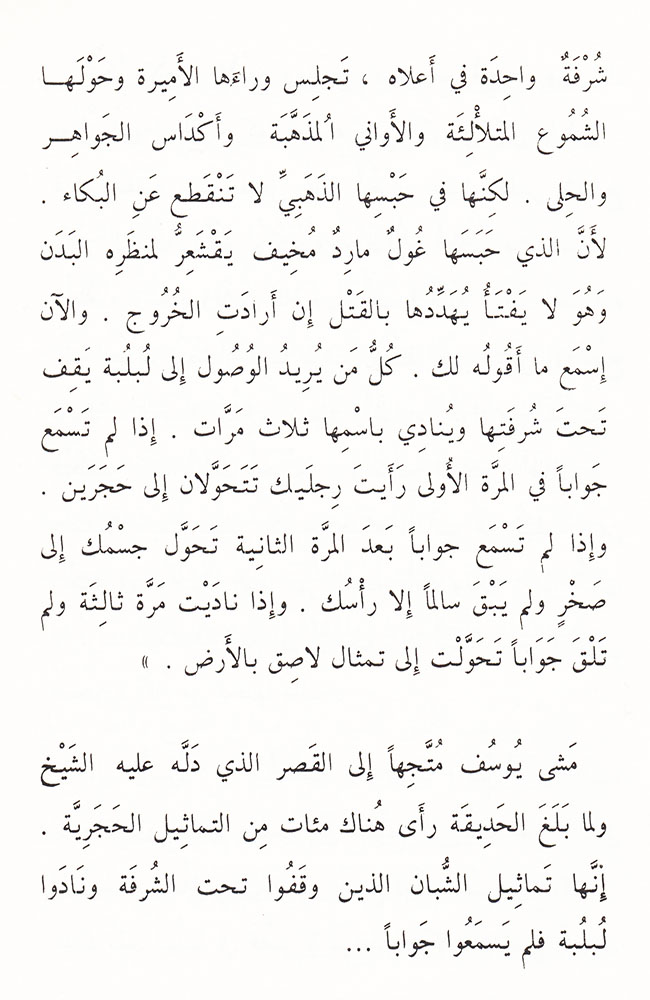 شُرْفَةٌ واحِدَة في أَعلاه ، تَجلِس وراءَها الأَمِيرة وحَوْلَها
الشُمُوع المتلأْلِئَة والأَواني المذَهَّبَة وأَكْدَاس الجَواهِر
والحِلى . لكِنَّها في حَبْسِها الذَهَبِيِّ لا تَنْقَطع عَنِ البُكاء .
لأَنَّ الذي حَبَسَها غُولٌ مارِدٌ مُخِيف يَقْشَعِرُّ لمنظَرِه البَدَن
وَهُوَ لا يَفْتَأُ يُهَدِّدُها بالقَتْل إِن أَرادَتِ الخُرُوج . والآن
إِسْمَع ما أَقُولُه لك . كُلُّ مَن يُرِيدُ الوُصُول إِلى لُبلُبة يَقِف
تَحتَ شُرفَتِها ويُنادِي باسْمِها ثلاث مَرَّات . إِذا لم تَسْمَع
جَواباً في المرَّة الأُولى رَأَيتَ رِجلَيك تَتَحَوَّلان إِلى حَجَرَين .
وإِذا لم تَسْمَع جواباً بَعدَ المرَّة الثانِية تَحَوَّل جسْمُك إِلى
صَخْرٍ ولم يَبْقَ سالماً إِلا رأْسُك . وإِذا نادَيْت مَرَّة ثالِثَة ولم
تَلْقَ جَوَاباً تَحَوَّلْت إِلى تمثال لاصِق بالأَرض . »
مَشى يُوسُف مُتَّجِهاً إِلى القَصر الذي دَلَّه عليه الشَيْخ
ولما بَلَغَ الحَدِيقَة رأَى هُناك مئات مِن التماثِيل الحَجَرِيَّة .
إِنَّها تَماثِيل الشُّبان الذين وقَفُوا تحت الشُرفَة ونَادَوا
لُبلُبة فلم يَسمَعُوا جَواباً ...